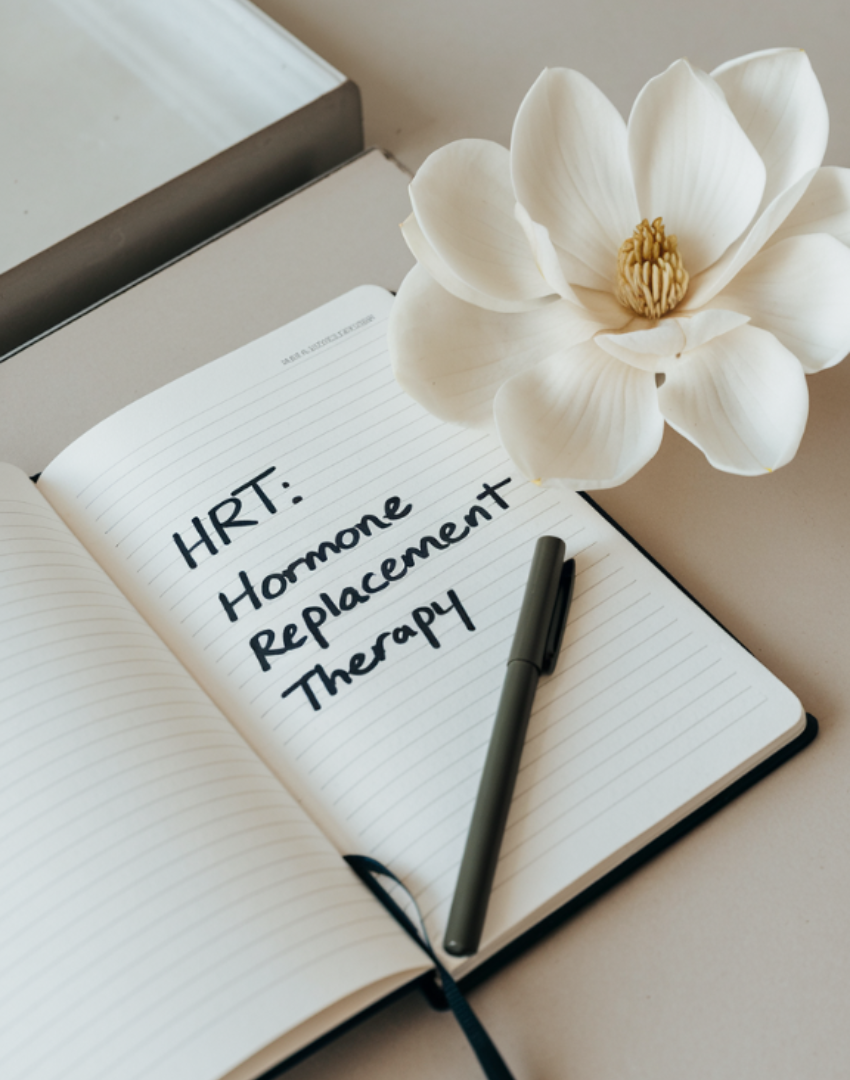 HRT:
Hormone
Replacement
Therapy